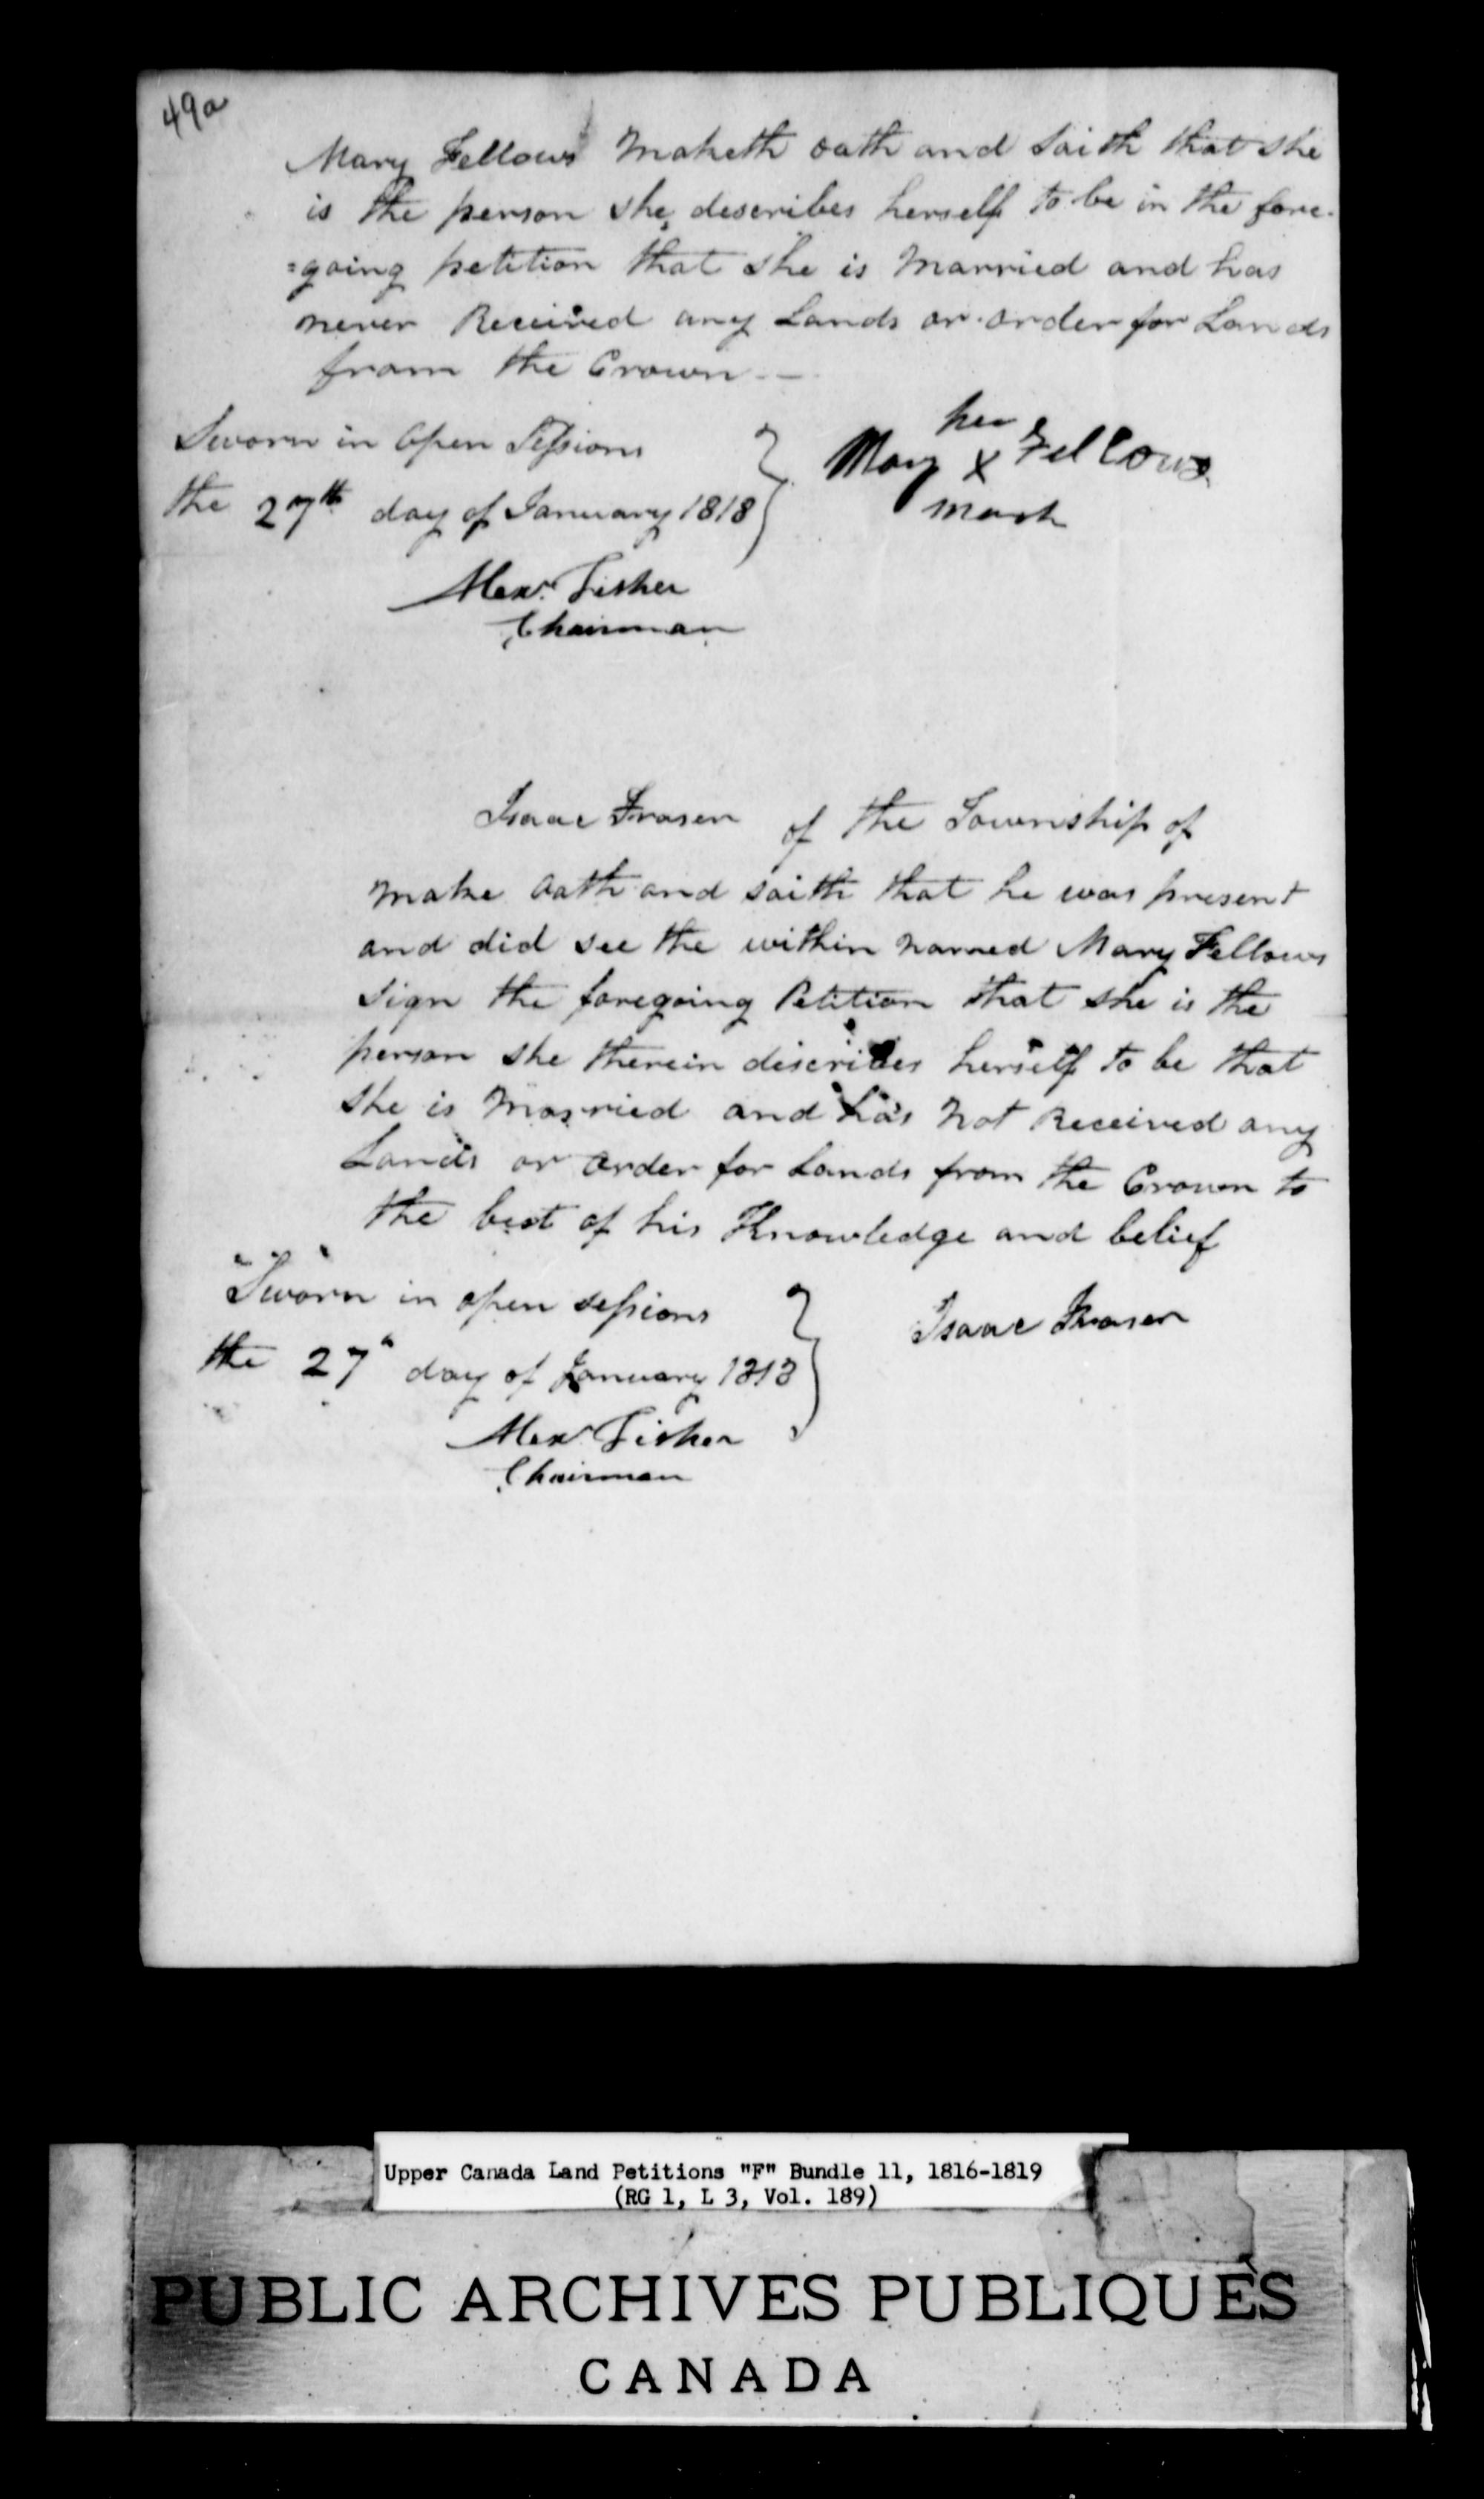 49a
Mary Fellows Maketh oath and Saith that she
is the person she describes herself to be in the fore-
=going petition that she is Married and has
never Received any Lands or order for Lands
from the Crown --
Sworn in Open Sessions
the 27th day of January 1818
her
Mary X Fellows
mark
Alexr. Fisher
Chairman
Isaac Fraser of the Township of
make Oath and saith that he was present
and did see the within named Mary Fellows
Sign the foregoing Petition that she is the
person she therein describes herself to be that
she is Married and has not Received any
Lands or order for Lands from the Crown to
the best of his Knowledge and belief
Sworn in open sessions
the 27th day of January 1818
Isaac Fraser
Alexr Fisher
Chairman
Upper Canada Land Petitions "F" Bundle 11, 1816-1819
(RG 1, L 3, Vol. 189)
PUBLIC ARCHIVES PUBLIQUES
CANADA